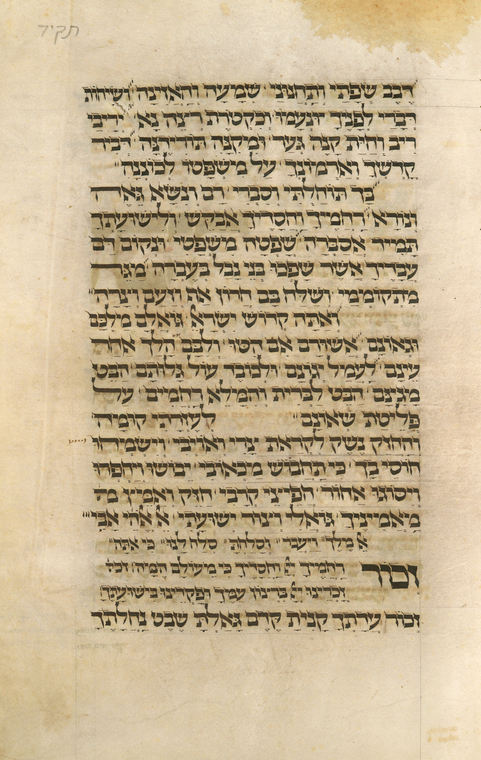 תקיד
דבב שפתי ותחנוני שמעה והאזינה ושיחות
דברי לפניך ינעמו כקטרת רצה נא יריבי
ריב וחית קנה גער ומקנה תודיתה דביר
קדשך וארמונך על משפטו לכוננה
בך תוחלתי וסברי רם ונשא גאה
ונורא רחמיך וחסדיך אבקש ולישועתך
תמיד אסברה שפטה משפטי ונקום דם
עבדיך אשר שפכו בני נבל בעברה
מתקוממי ושלח בם חרון אף וזעם וצרה
ואתה קדוש ישראל גואלם מלכם
וגאונם אשורם אם הטו ולבם הלך אחר
עינם לעמל גוום ולכובד עול גלותם הבט
מגינם הבט לברית והמלא רחמים על
פליטת שאונם לעזרתי קומה
והחזק נשק לקראת צרי ואויבי וישמחו
חוסי בך כי תחבוש מכאובי יבושו ויחפרו
ויסוגו אחור חפיצי קרבי חזק ואמיץ
מאמיניך גואלי וצור ישועתי אלהי אבי
אל מלך ויעבר וסלחת סלח לנו כי אתה
זכור רחמיך וחסדיך כי מעולם המה
זכרינו ברצון עמך ופקדינו בישועתך
זכור עדתך קנית קדם גאלת שבט נחלתך